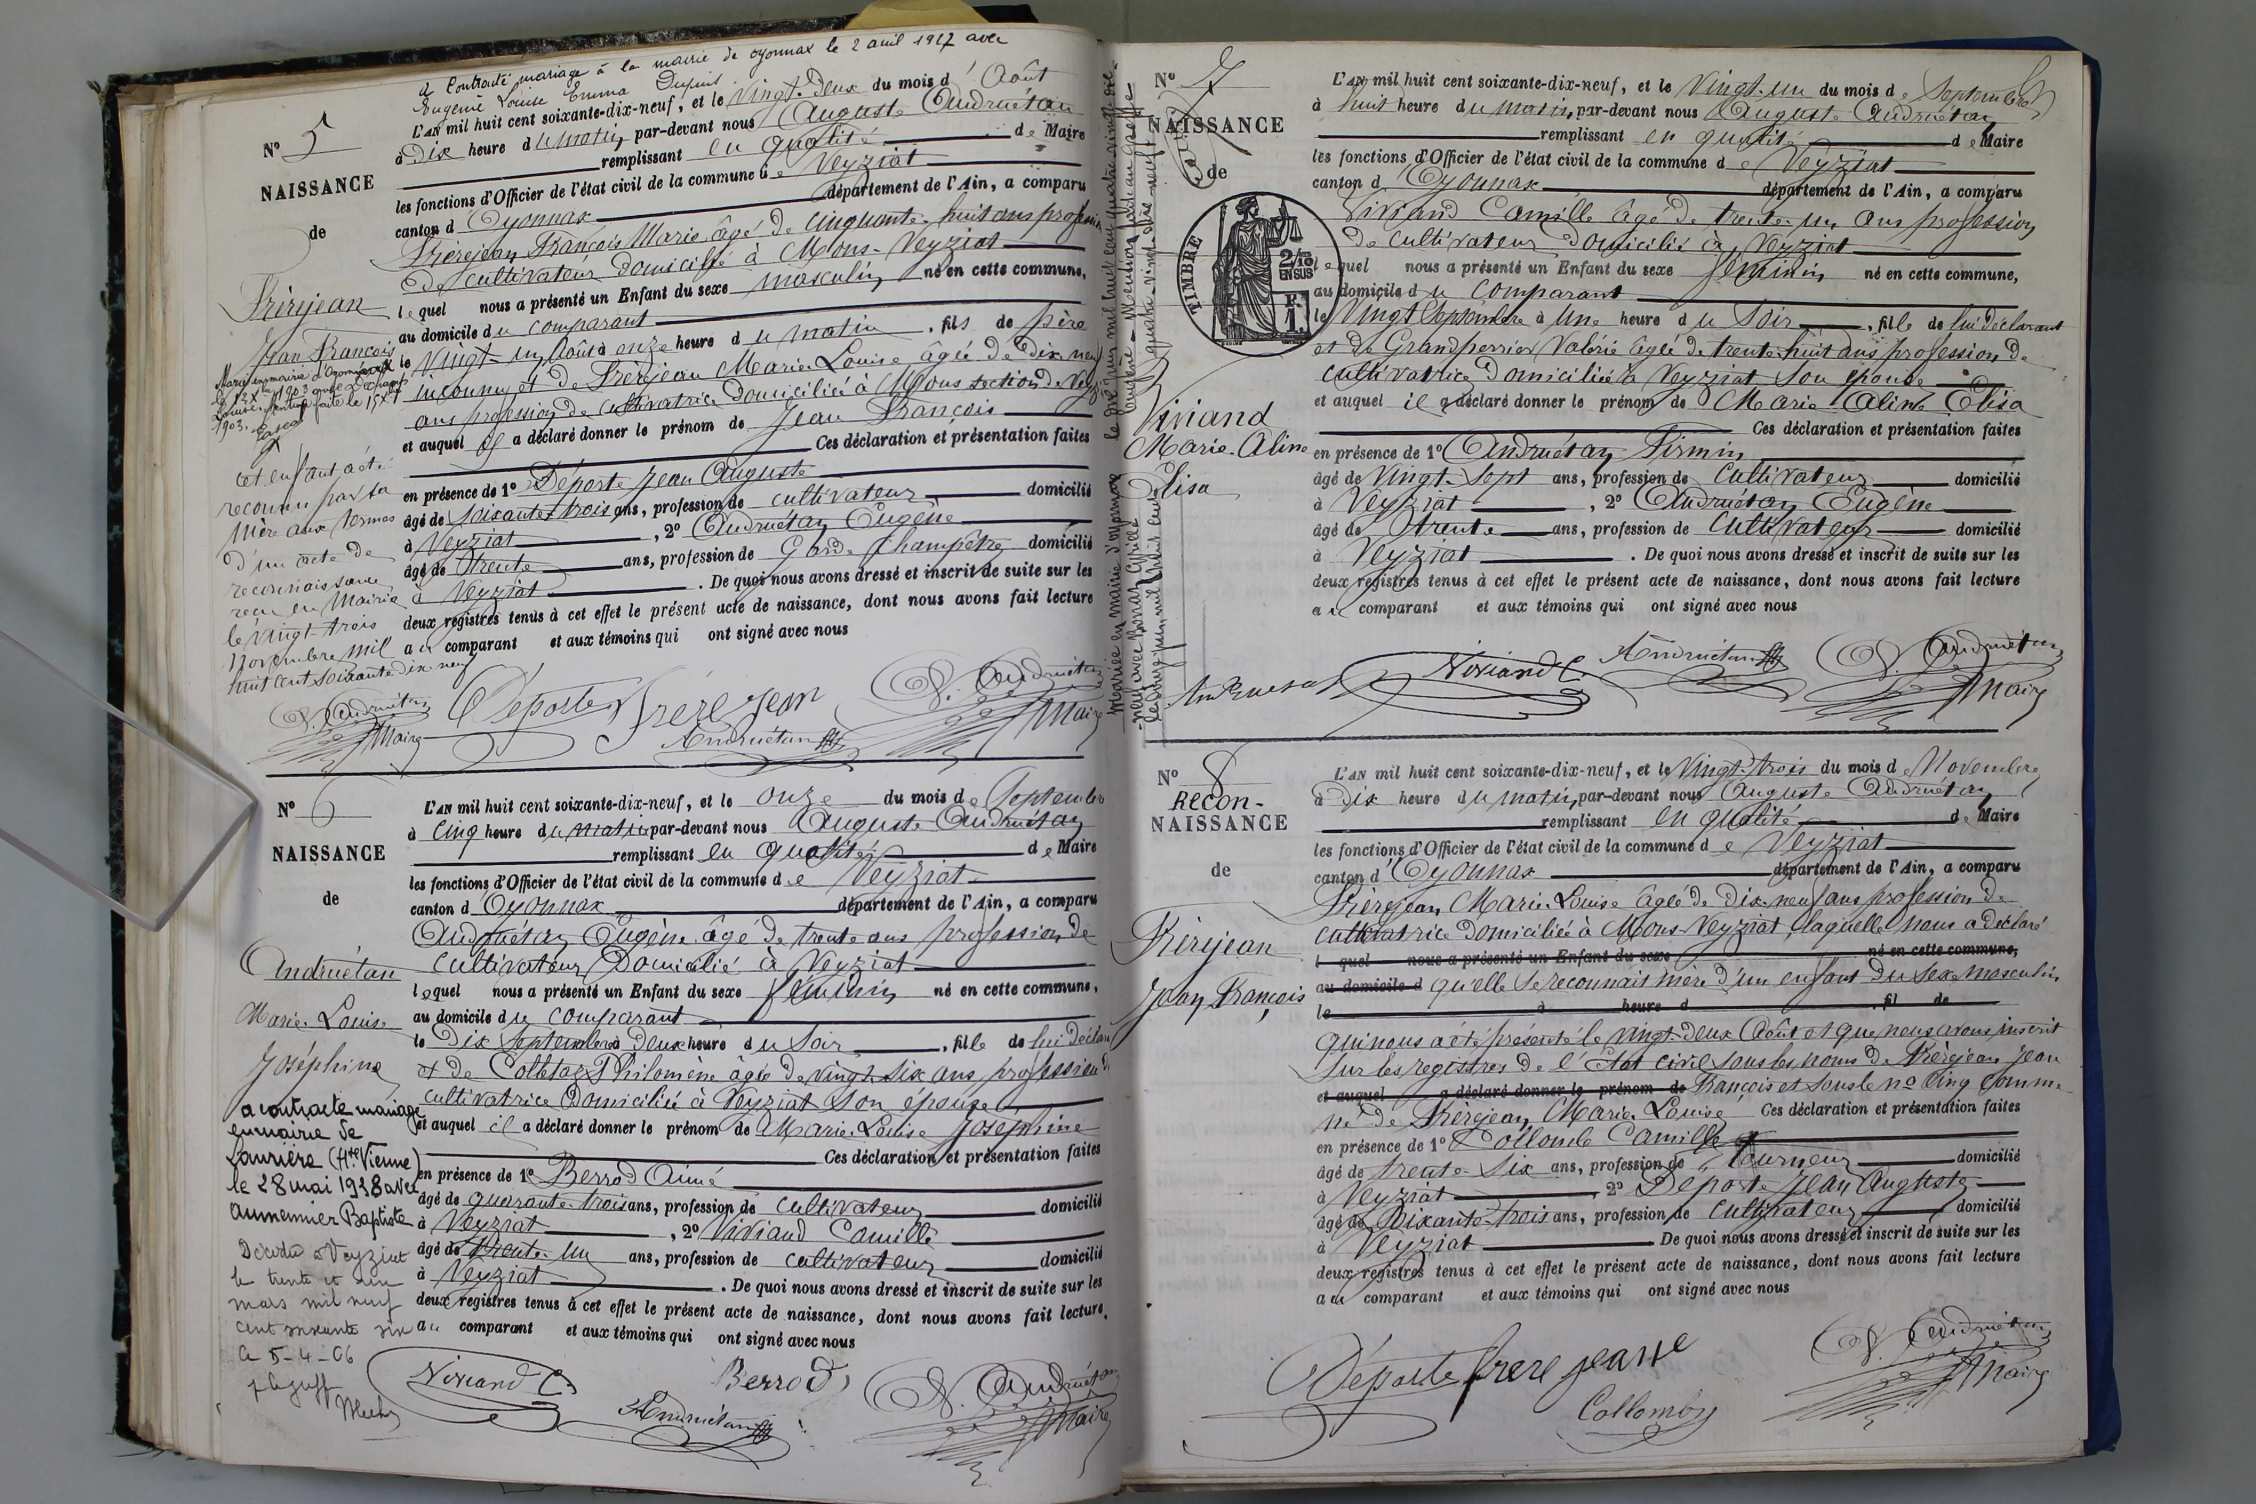 a contracté mariage à la mairie de oyonnax le 2 avril 1917 avec
Eugenie Louise Emma Dupuis
N° 5
NAISSANCE
de
Frèrejean
Jean François
cet enfant a été
reconnu par sa
Mère aux termes
d'un acte de
reconnaissance
reçu en Mairie
le vingt-trois
Novembre mil
huit cent soixante dix-neuf
A. Andruétan
Maire
L'AN mil huit cent soixante-dix-neuf, et le vingt-deux du mois d'Août
à Dix heure du matin, par-devant nous Auguste Andruétan
remplissant en qualité de Maire
les fonctions d'Officier de l'état civil de la commune de Veyziat
canton d'Oyonnax département de l'Ain, a comparu
Frèrejean François Marie âgé de cinquante-huit ans profession
de cultivateur domicilié à Mons-Veyziat
lequel nous a présenté un Enfant du sexe masculin né en cette commune,
au domicile du comparant
le vingt-un Août à onze heure du matin, fils de père
inconnu et de Frèrejean Marie Louise âgée de dix-neuf
ans profession de cultivatrice domiciliée à Mons section de Veyziat
et auquel il a déclaré donner le prénom de Jean François
Ces déclaration et présentation faites
en présence de 1° Déporte Jean Auguste
âgé de soixante-trois ans, profession de cultivateur domicilié
à Veyziat, 2° Andruétan Eugène
âgé de trente ans, profession de Garde Champêtre domicilié
à Veyziat. De quoi nous avons dressé et inscrit de suite sur les
deux registres tenus à cet effet le présent acte de naissance, dont nous avons fait lecture
au comparant et aux témoins qui ont signé avec nous
Déporte Frère Jean A. Andruétan
Andruétan Maire
N° 6
NAISSANCE
de
Andruétan
Marie Louise
Joséphine
a contracté mariage
en mairie de
Laurière (Hte Vienne)
le 28 mai 1938 avec
Aumennier Baptiste
Décédée à Veyziat
le trente et un
mars mil neuf
cent soixante six
L'AN mil huit cent soixante-dix-neuf, et le onze du mois de Septembre
à cinq heure du matin par-devant nous Auguste Andruétan
remplissant en qualité de Maire
les fonctions d'Officier de l'état civil de la commune de Veyziat
canton d'Oyonnax département de l'Ain, a comparu
Andruétan Eugène âgé de trente ans profession de
cultivateur domicilié à Veyziat
lequel nous a présenté un Enfant du sexe féminin né en cette commune,
au domicile du comparant
le Dix Septembre à Deux heure du Soir, fille de lui Déclarant
et de Colletaz Philomène âgée de vingt-six ans, profession de
cultivatrice domiciliée à Veyziat son épouse
et auquel il a déclaré donner le prénom de Marie Louise Joséphine
Ces déclaration et présentation faites
en présence de 1° Berrod Aimé
âgé de quarante-trois ans, profession de cultivateur domicilié
à Veyziat, 2° Viviand Camille
âgé de trente-un ans, profession de cultivateur domicilié
à Veyziat. De quoi nous avons dressé et inscrit de suite sur les
deux registres tenus à cet effet le présent acte de naissance, dont nous avons fait lecture,
au comparant et aux témoins qui ont signé avec nous
Viviand C. Berrod A. Andruétan
Andruétan Maire
N° 7
NAISSANCE
de
TIMBRE
2/10 EN SUS
F. 1.
Viviand
Marie-Aline
Elisa
L'AN mil huit cent soixante-dix-neuf, et le vingt-un du mois de Septembre
à huit heure du matin, par-devant nous Auguste Andruétan
remplissant en qualité de Maire
les fonctions d'Officier de l'état civil de la commune de Veyziat
canton d'Oyonnax département de l'Ain, a comparu
Viviand Camille âgé de trente-un ans profession
de cultivateur domicilié à Veyziat
lequel nous a présenté un Enfant du sexe féminin né en cette commune,
au domicile du comparant
le Vingt Septembre à Une heure du Soir, fille de lui déclarant
et de Grandperrier Valérie âgée de trente-huit ans profession de
cultivatrice domiciliée à Veyziat Son épouse
et auquel il a déclaré donner le prénom de Marie Aline Elisa
Ces déclaration et présentation faites
en présence de 1° Andruétan Firmin
âgé de vingt-sept ans, profession de cultivateur domicilié
à Veyziat, 2° Andruétan Eugène
âgé de trente ans, profession de cultivateur domicilié
à Veyziat. De quoi nous avons dressé et inscrit de suite sur les
deux registres tenus à cet effet le présent acte de naissance, dont nous avons fait lecture
au comparant et aux témoins qui ont signé avec nous
Viviand C. Andruétan A. Andruétan
Maire
N° 8
RECON-
NAISSANCE
de
Frèrejean
Jean François
L'AN mil huit cent soixante-dix-neuf, et le vingt-trois du mois de Novembre
à dix heure du matin, par-devant nous Auguste Andruétan
remplissant en qualité de Maire
les fonctions d'Officier de l'état civil de la commune de Veyziat
canton d'Oyonnax département de l'Ain, a comparu
Frèrejean Marie Louise âgée de dix-neuf ans profession de
cultivatrice domiciliée à Mons-Veyziat, laquelle nous a déclaré
l quel nous a présenté un Enfant du sexe né en cette commune,
au domicile d qu'elle se reconnait mère d'un enfant du sexe masculin
le à heure d, fil de
qui nous a été présenté le vingt-deux Août et que nous avons inscrit
sur les registres de l'Etat civil sous les noms de Frèrejean Jean
et auquel a déclaré donner le prénom de François et sous le n° cinq comme
né de Frèrejean, Marie Louise Ces déclaration et présentation faites
en présence de 1° Collomb Camille
âgé de trente-six ans, profession de Tourneur domicilié
à Veyziat, 2° Déporte Jean Auguste
âgé de soixante-trois ans, profession de cultivateur domicilié
à Veyziat. De quoi nous avons dressé et inscrit de suite sur les
deux registres tenus à cet effet le présent acte de naissance, dont nous avons fait lecture
au comparant et aux témoins qui ont signé avec nous
Déporte frere jean A. Andruétan
Collomb Maire